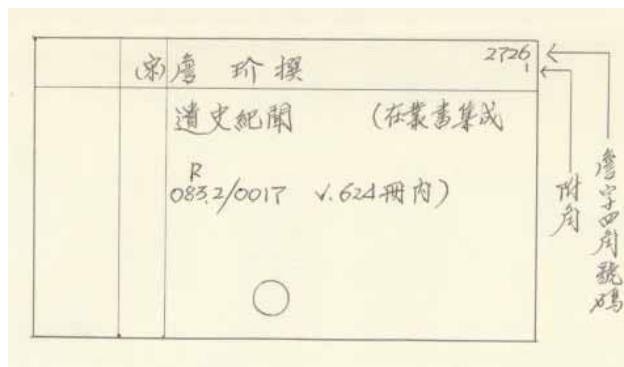 2726
1
(宋)詹 玠 撰
遺史紀聞 (在叢書集成
R
083.2/0017 v.624冊內)
附角
詹字四角號碼